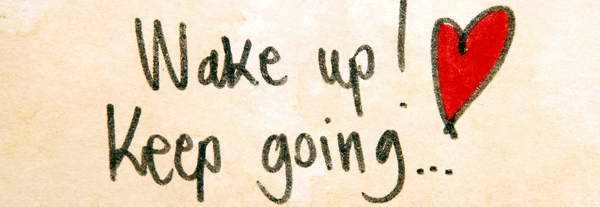 Wake up!
Keep going...